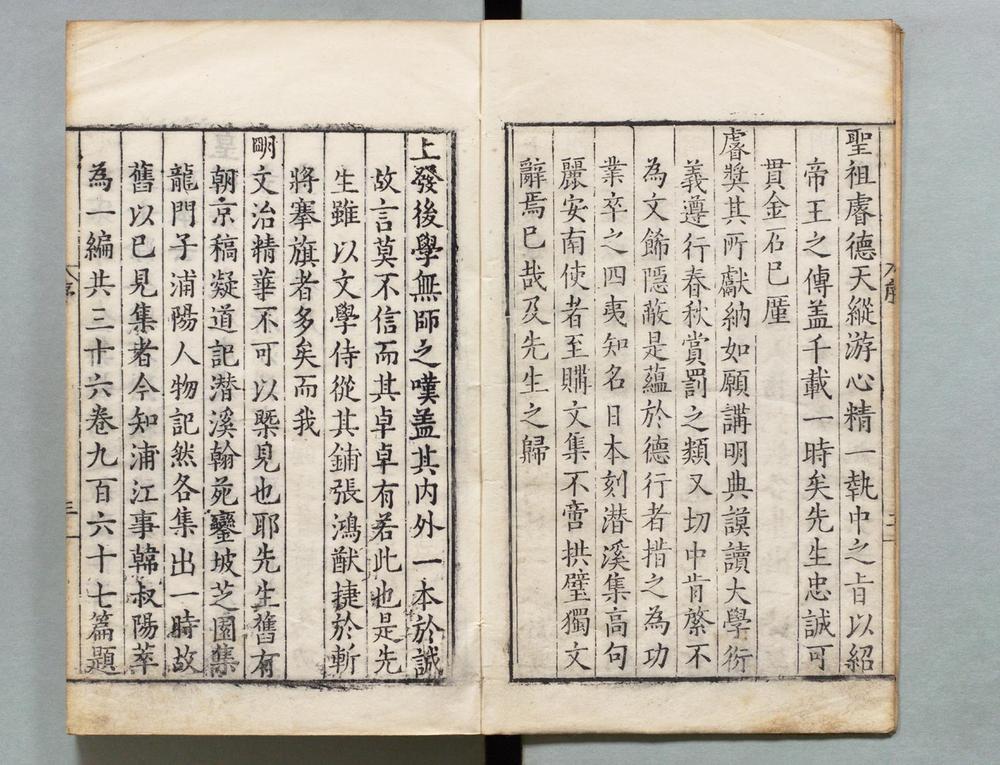 聖祖睿德天縱游心精一執中之旨以紹
帝王之傳盖千載一時矣先生忠誠可
貫金石已厪
睿奬其所獻納如願講明典謨讀大學衍
義遵行春秋賞罰之類又切中肯綮不
為文餙隠蔽是蘊於德行者措之為功
業卒之四夷知名日本刻潜溪集高句
麗安南使者至購文集不啻拱璧獨文
辭焉已哉及先生之歸
上發後學無師之嘆盖其内外一本於誠
故言莫不信而其卓卓有若此也是先
生雖以文學侍從其鋪張鴻猷捷於斬
將搴旗者多矣而我
明文治精華不可以槩見也耶先生舊有
朝京稿凝道記潜溪翰苑鑾坡芝園集
龍門子浦陽人物記然各集出一時故
舊以已見集者今知浦江事韓叔陽萃
為一編共三十六卷九百六十七篇題